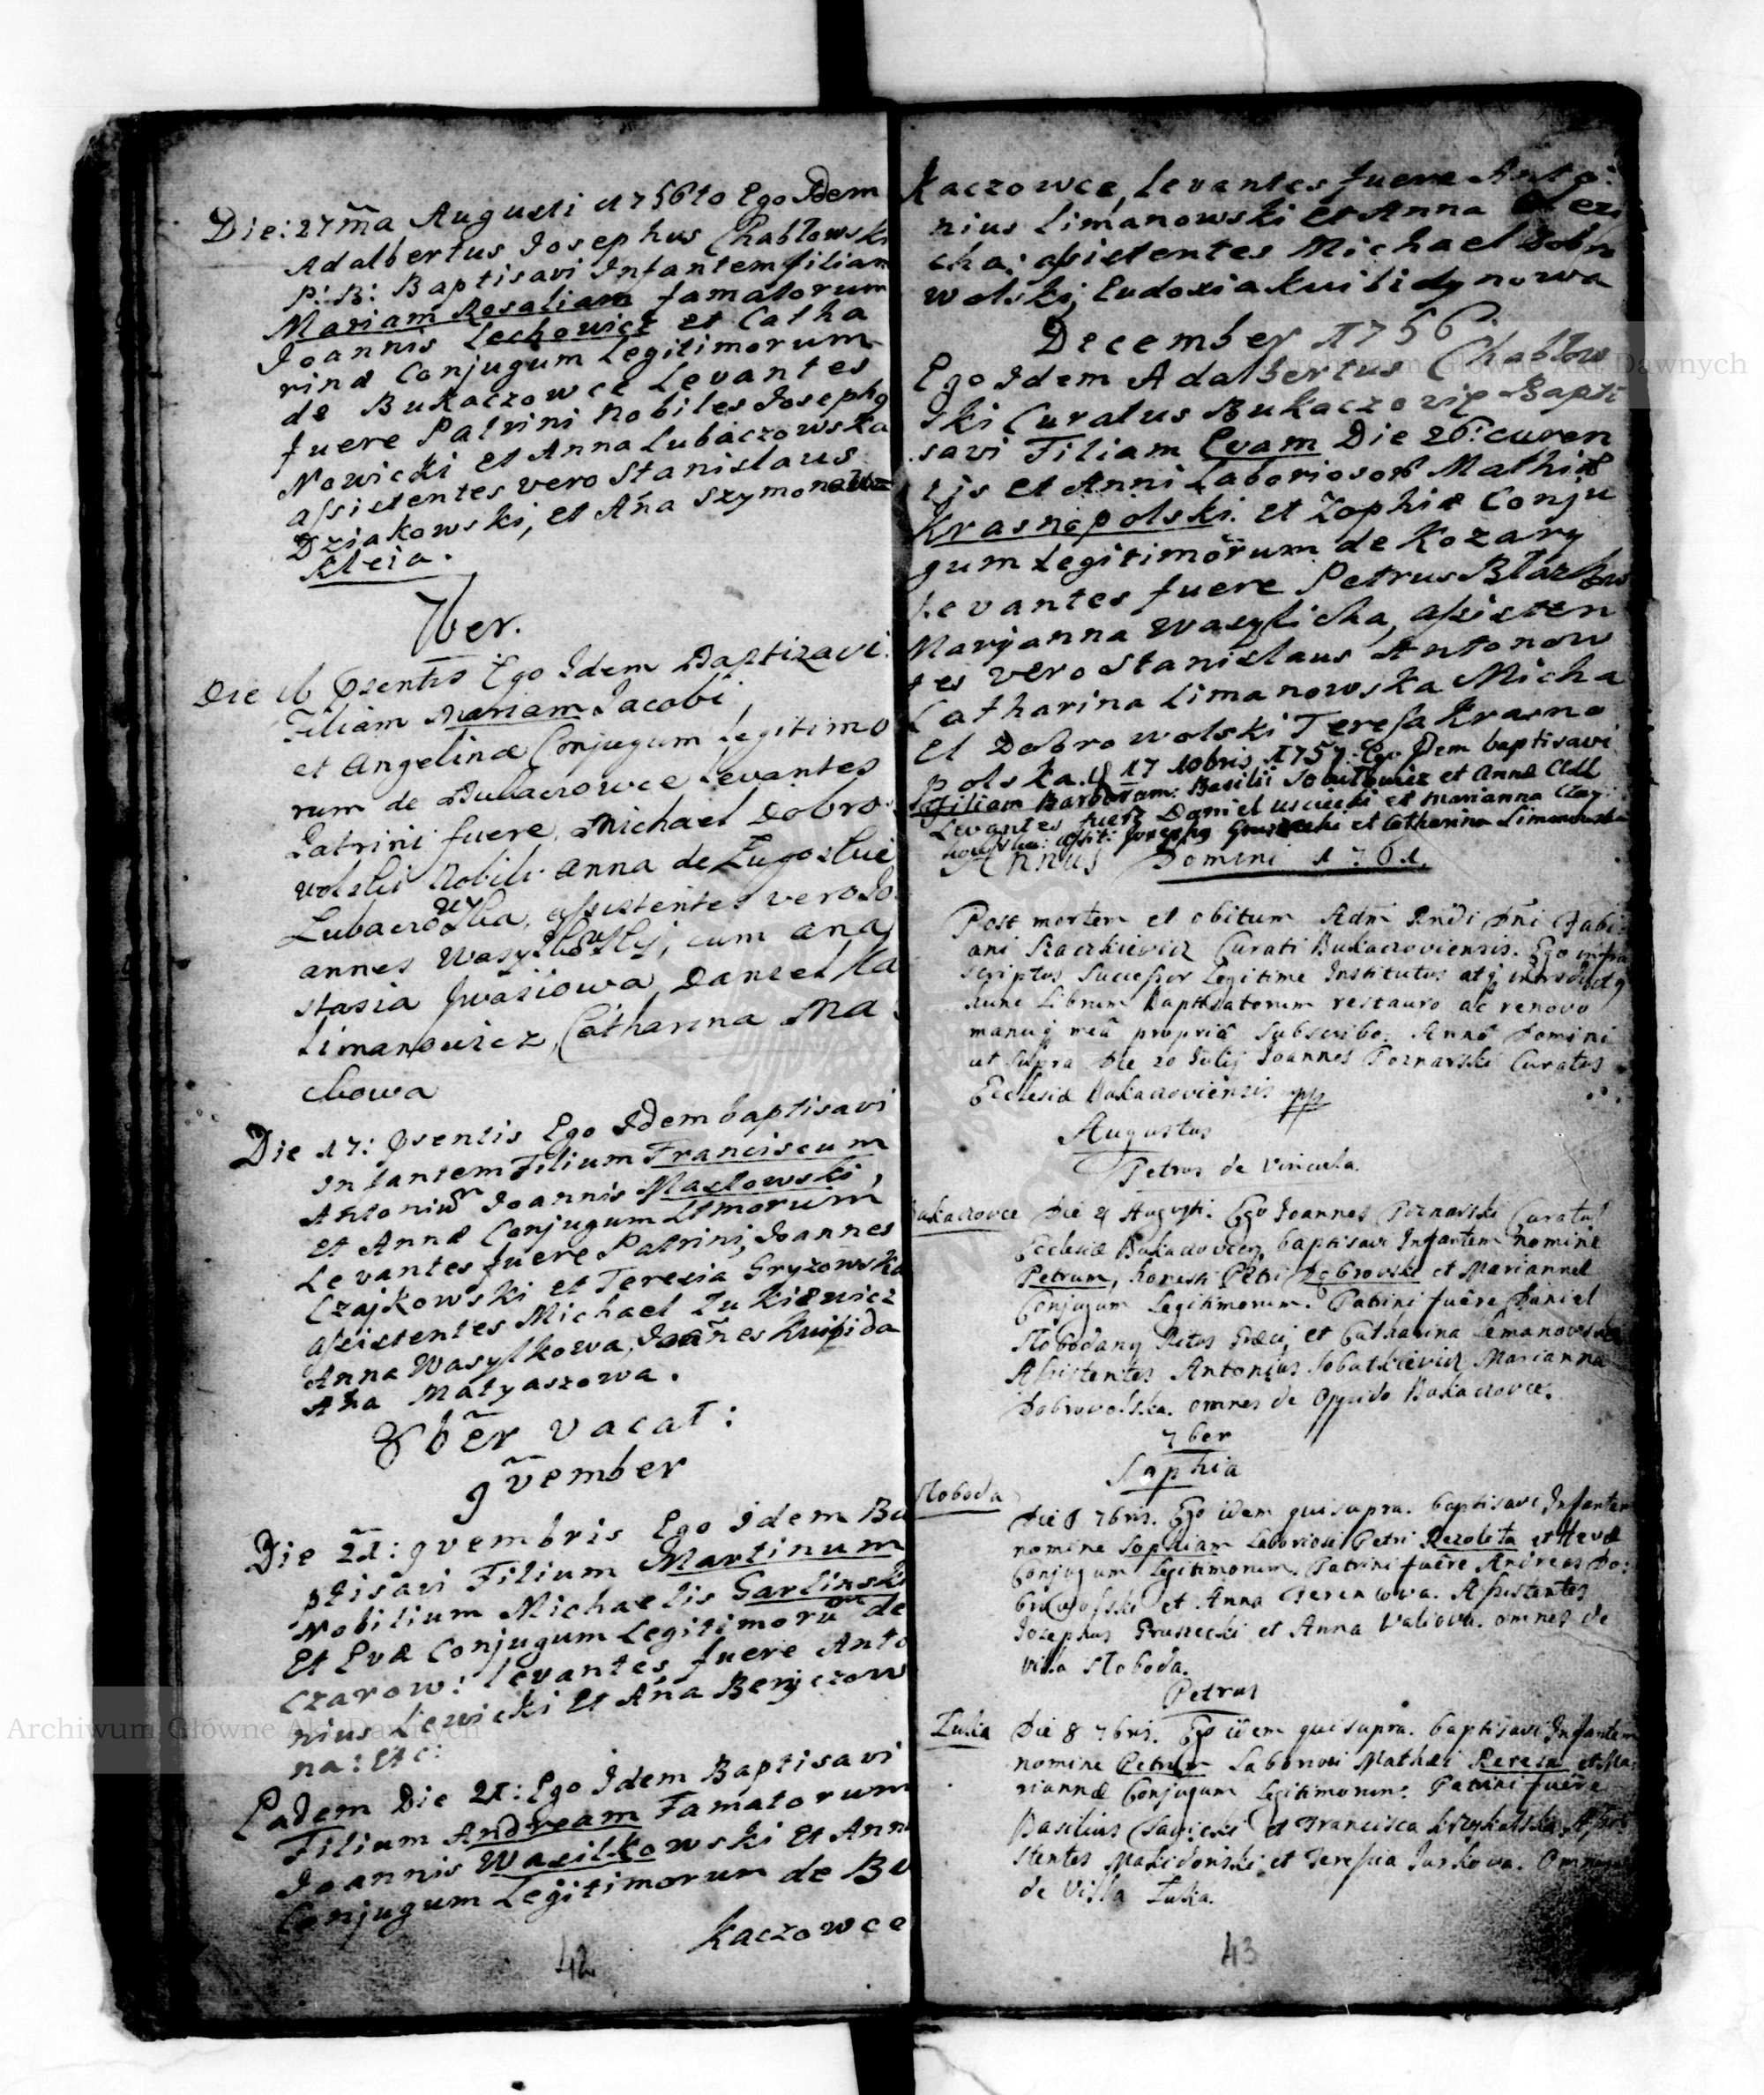 Die: 27ma Augusti 1756to Ego Idem
Adalbertus Josephus Chablowski
P: B: Baptisavi Infantem filiam
Mariam Rosaliam famatorum
Joannis Lechowicz et Catha
rinæ Conjugum Legitimorum
de Bukaczowce Levantes
fuere Patrini Nobiles Josephg
Nowicki et Anna Lubaczowska
assistentes vero Stanislaus
Dziakowski, et Ana Szymonowa
Kleia.
7ber.
Die 16 Psentis Ego Idem Baptizavi
Filiam Mariam Jacobi
et Angelinæ Conjugum Legitimo
rum de Bukaczowce Levantes
Patrini fuere Michael Dobro
wolski Nobili Anna de
Lubaczowska, assistentes vero Jo
annes cum ana
stasia Iwasiowa Daniel Ka
Limanowicz, Catharina Ma
chowa
Die 17: Psentis Ego Idem baptisavi
Infantem Filium Franciscum
Antoniu Joannis Maslowski
Et Annæ Conjugum Ltmorum,
Levantes fuere Patrini, Joannes
Czajkowski et Teresia Gryzowska
assistentes Michael Zukiewicz
Anna Wasylkowa, Joañes Kuipida
Aña Matyaszowa.
8bẽr vacat:
9vember
Die 21: 9vembris Ego Idem Ba
ptisavi Filium Martinum
Nobilium Michaelis Garlinski
Et Evæ Conjugum Legitimorũ de
Czarow: levantes fuere Anto
nius Lewicki Et Aña Beryczow
na: Etc:
Eadem Die 21: Ego Idem Baptisavi
Filium Andream Famatorum
Joannis Wasilkowski Et Ann
Conjugum Legitimorum de Bu
kaczowce
42
Kaczowce, Levantes fuere Anto:
nius Limanowski et Anna
cha: assistentes Michael Dobro
wolski, Eudoxia Kuilidynowa
December 1756
Ego Idem Adalbertus Chablow
ski Curatus Bukaczovię Bapti
savi Filiam Evam Die 26: curen
tis et Anni Laboriosor Mathiæ
Krasnopolski. et Zophiæ Conju
gum Legitimorum de Kozary
Levantes fuere Petrus
Maryanna Wasylicha, assisten
tes vero Stanislaus Antonow
Catharina Limanowska Micha
el Dobrowolski Teresa Krasno
polska. 17 10bris 1757: Ego Idem baptisavi
Filiam Barbaram: Basilii et Annæ
Levantes fuere Daniel et Marianna
assist: Josephg Gruszecki et Catharina Limanowska
Annus Domini 1761.
Post mortem et obitum Adm Rndi Dni Fabi
ani Raczkiewicz Curati Bukaczoviensis. Ego infra
scriptus Successor Legitime Institutus atq
hunc Librum Baptisatorum restauro ac renovo
manuq meâ propriâ Subscribo. Anno Domini
ut Supra Die 20 Julij Joannes Poznarski Curatus
Ecclesiæ Bukaczoviensis mpp
Augustus
Petrus de Vincula.
Bukaczowce Die 4 Augusti. Ego Joannes Poznarski Curatus
Ecclesiæ Bukaczovien, baptisavi Infantem nomine
Petrum, honesti Petri Dobrovolski et Mariannæ
Conjugum Legitimorum. Patrini fuêre Daniel
Slobodany Ritus Græci, et Catharina Lemanowska
Assistentes Antonius Sobutkievicz Marianna
Dobrovolska. omnes de Oppido Bukaczovce.
7ber
Sophia
Sloboda
Die 8 7bris. Ego idem qui supra. baptisavi Infantem
nomine Sophiam Laboriosi Petri Rezoleta et Hevæ
Conjugum Legitimorum. Patrini fuêre Andreas Do:
browolski et Anna Terenowa. Assistentes
Josephus Gruszecki et Anna Valiova. omnes de
villa Sloboda.
Petrus
Łuka Die 8 7bris. Ego idem qui supra. baptisavi Infantem
nomine Petrum Laboriosi Mathæi Rereta et Ma
riannæ Conjugum Legitimorum. Patrini fuêre
Basilius Sawicki et Francisca Assi
stentes Makidoński et Teressia Jurkowa. Omnes
de Villa Łuka.
43
Archiwum Główne Akt Dawnych
Archiwum Główne Akt Dawnych